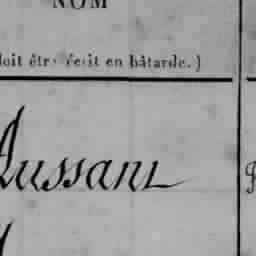 NOM
doit être écrit en bâtarde.)
Aussant